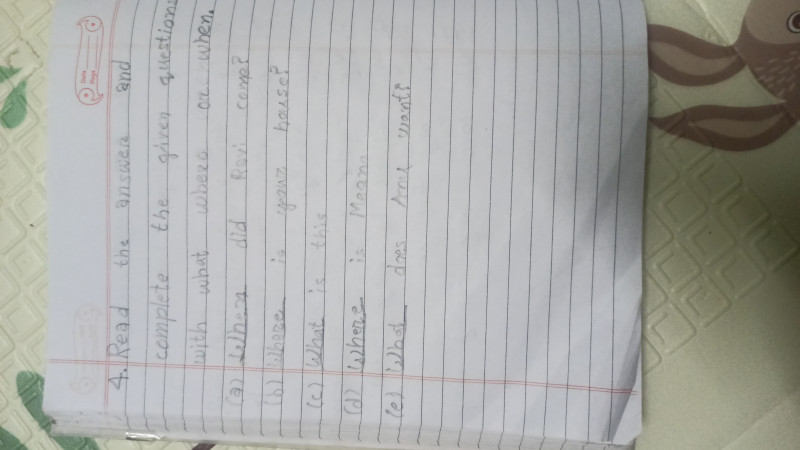 Date
Page
4. Read the answer and
complete the given questions
with what where or when.
(a) When did Ravi come?
(b) Where is your house?
(c) What is this
(d) Where is Meena
(e) What does Anu want?